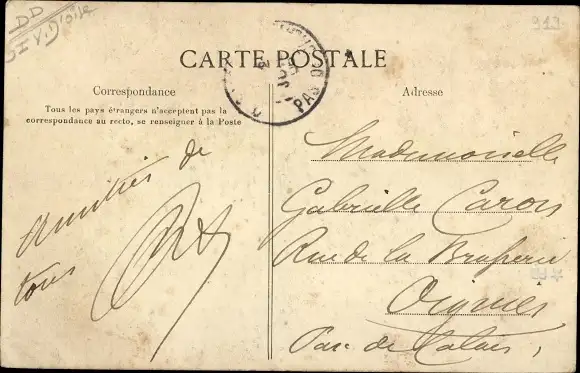 DD
CARTE POSTALE
Correspondance
Tous les pays étrangers n'acceptent pas la
correspondance au recto, se renseigner à la Poste
Amitiés de
tous
Adresse
Mademoiselle
Gabrielle Caron
Rue de la Brasserie
Oignies
Pas de Calais,